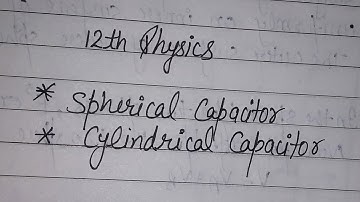 12th Physics
* Spherical Capacitor.
* Cylindrical Capacitor